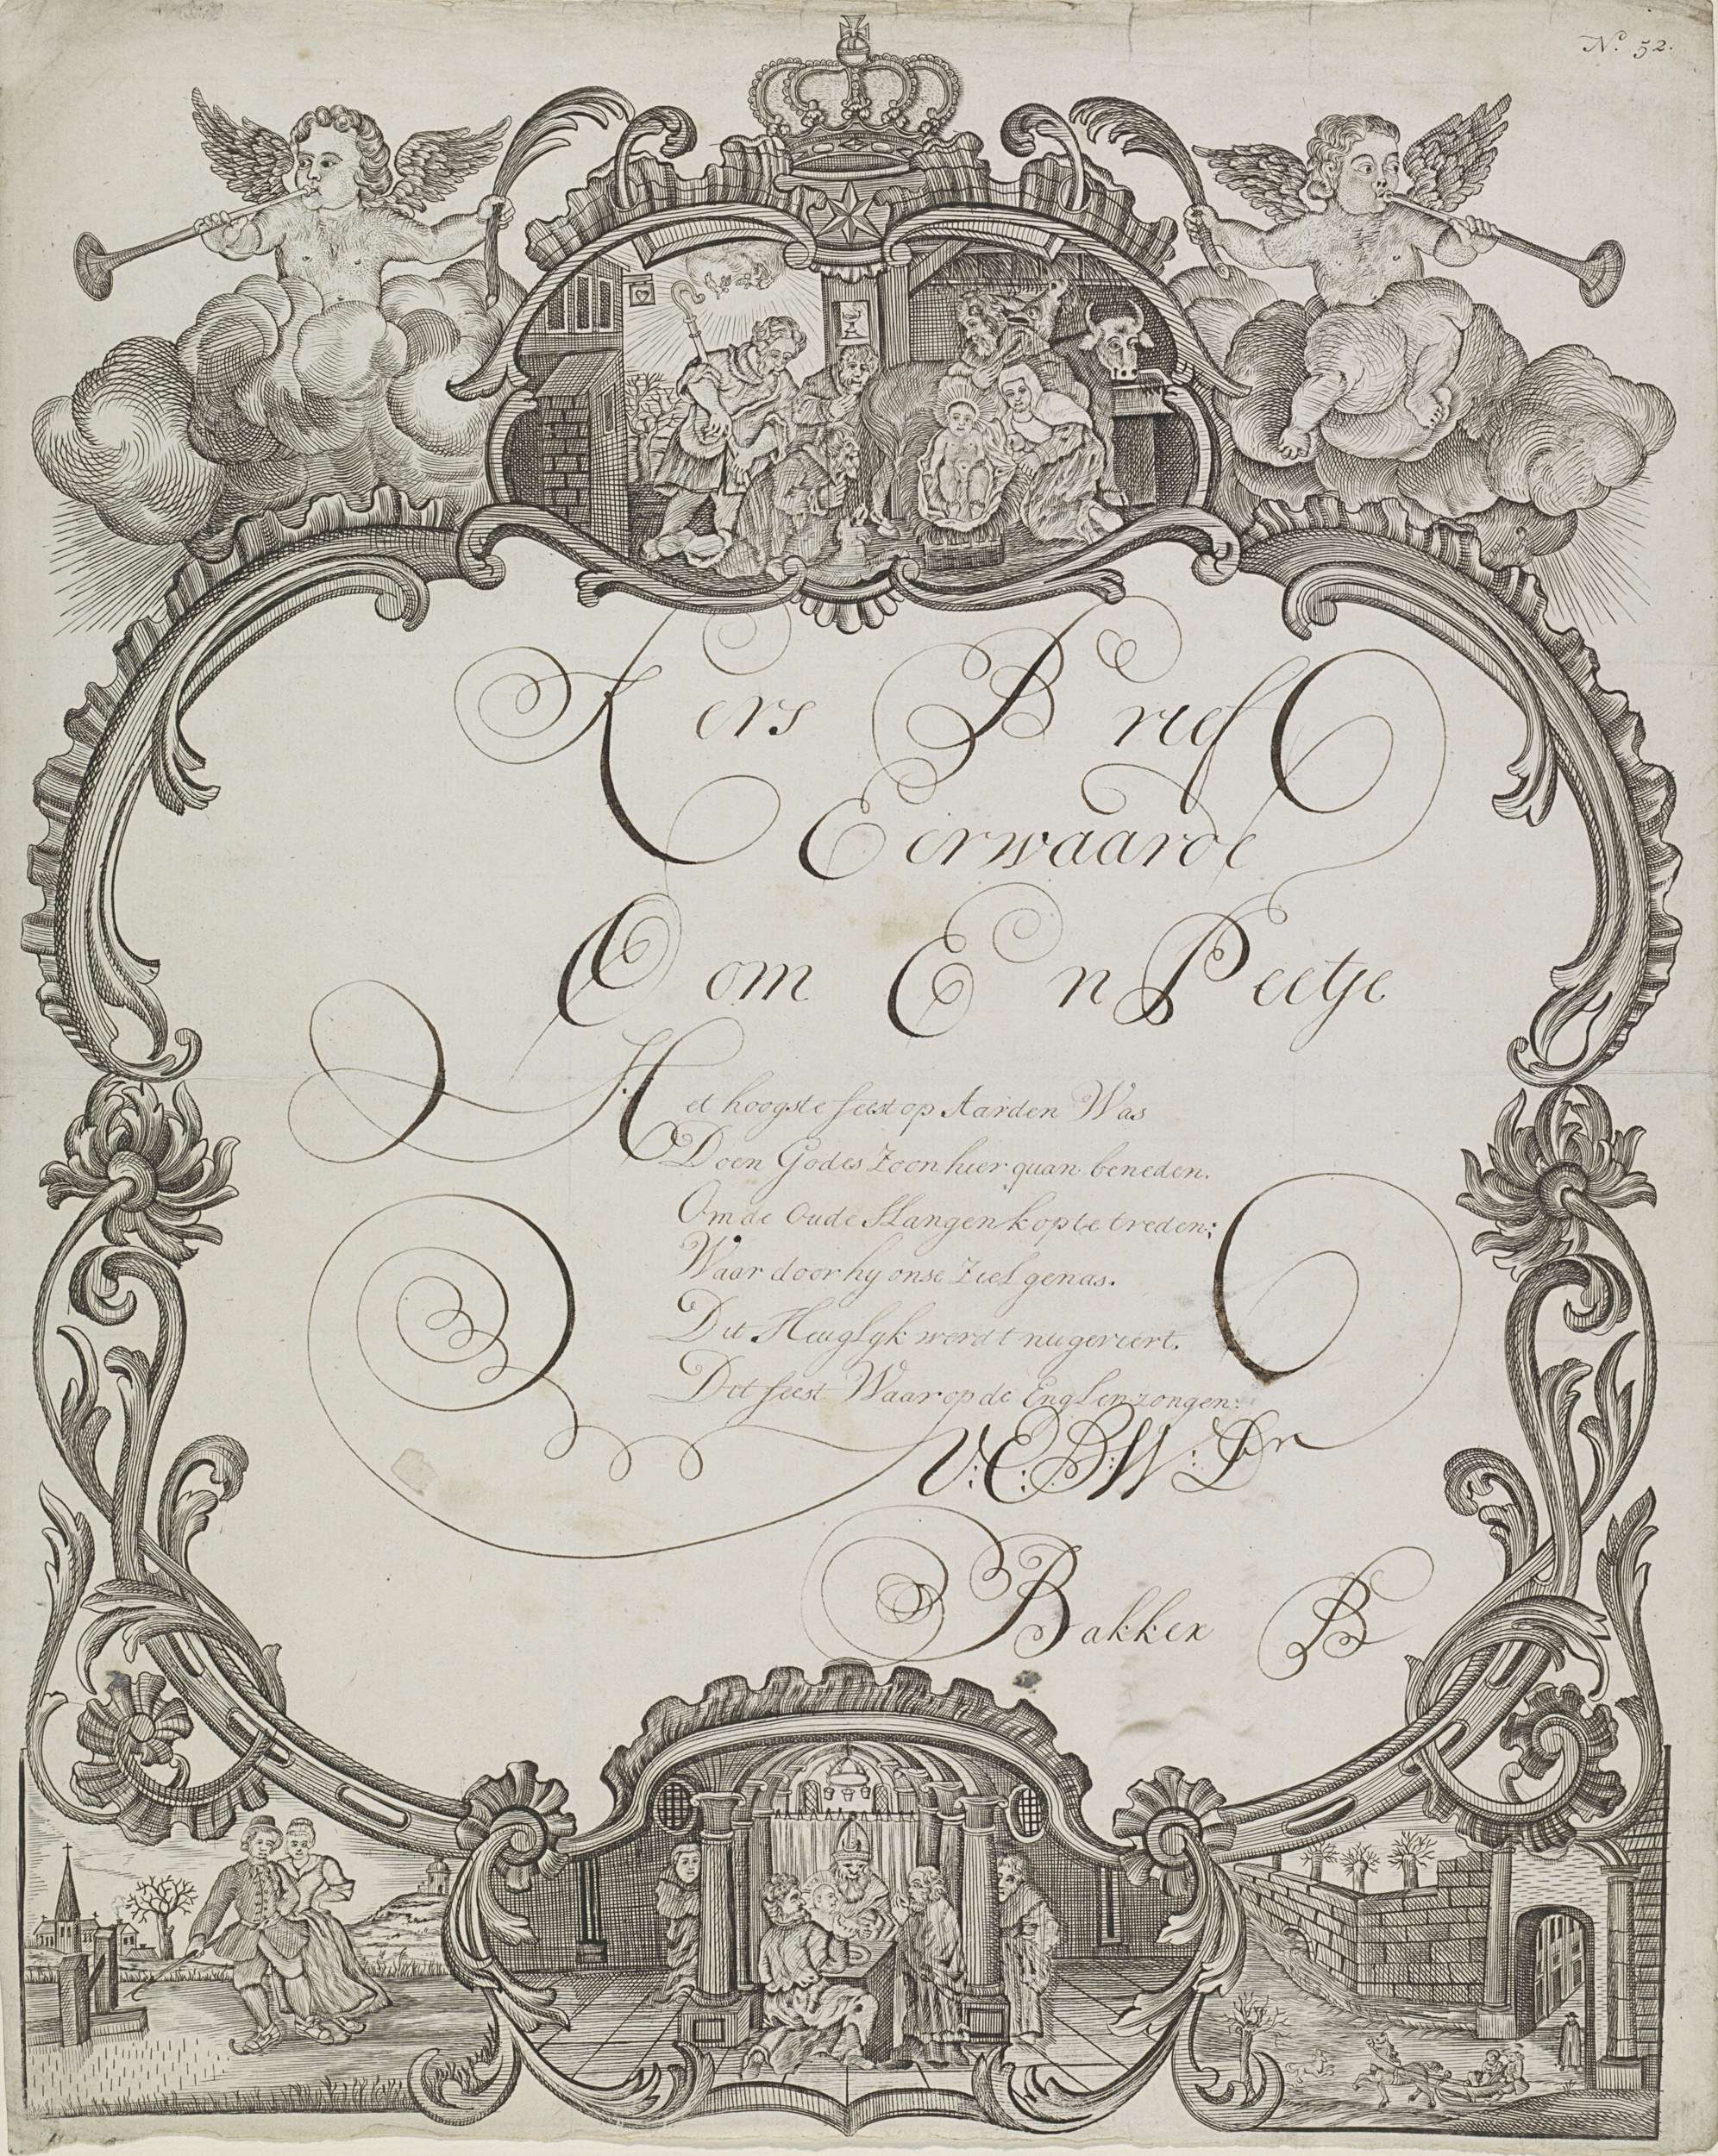 No. 52.
Kers Brief
Eerwaarde
Oom En Peetje
Het hoogste feest op Aarden Was
Doen Godes Zoon hier quan beneden.
Om de Oude Slangen kop te treden;
Waar door hy onse Ziel genas.
Dit Heuglyk werdt nu geviert.
Dit feest Waar op de Englen zongen:
V:E:D:W:Dr
Bakker B